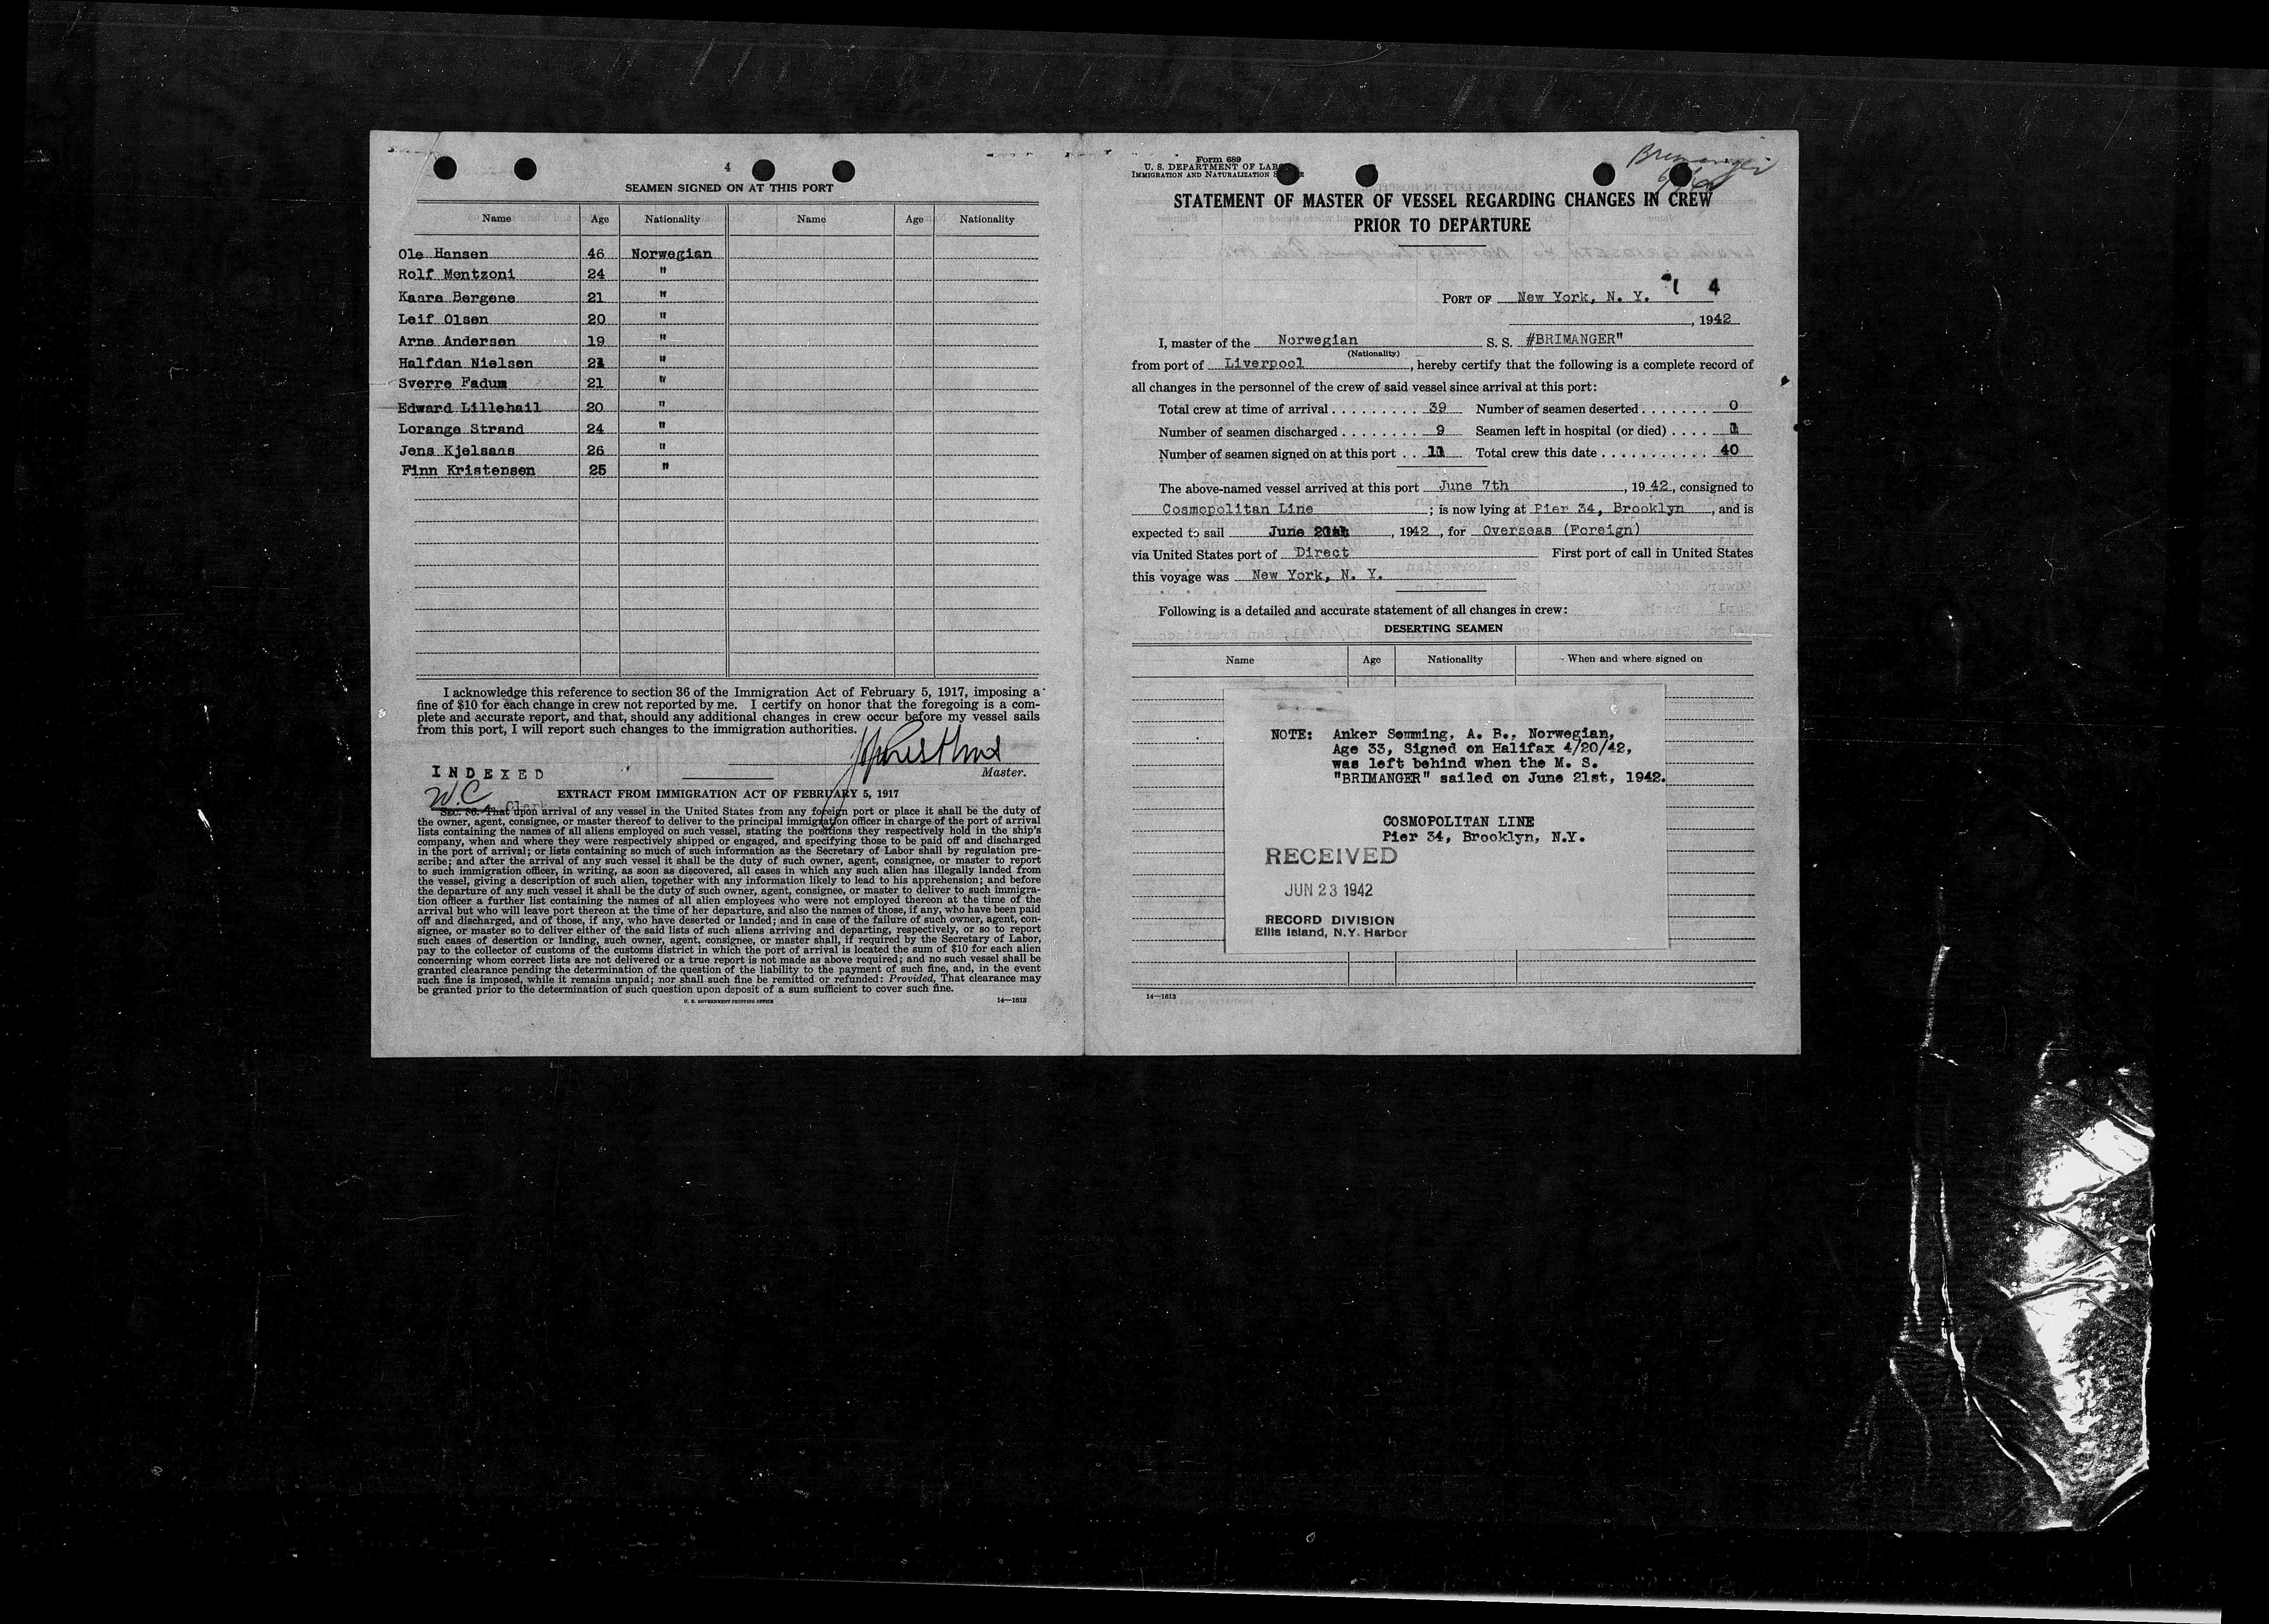 4
SEAMEN SIGNED ON AT THIS PORT
Name Age Nationality Name Age Nationality
Ole Hansen 46 Norwegian
Rolf Mentzoni 24 "
Kaare Bergene 21 "
Leif Olsen 20 "
Arne Andersen 19 "
Halfdan Nielsen "
Sverre Fadum 21 "
Edward Lillehail 20 "
Lorange Strand 24 "
Jens Kjelsaas 26 "
Finn Kristensen 25 "
I acknowledge this reference to section 36 of the Immigration Act of February 5, 1917, imposing a
fine of $10 for each change in crew not reported by me. I certify on honor that the foregoing is a com-
plete and accurate report, and that, should any additional changes in crew occur before my vessel sails
from this port, I will report such changes to the immigration authorities.
Master.
INDEXED
W.C Clerk
EXTRACT FROM IMMIGRATION ACT OF FEBRUARY 5, 1917
SEC. 36. That upon arrival of any vessel in the United States from any foreign port or place it shall be the duty of
the owner, agent, consignee, or master thereof to deliver to the principal immigration officer in charge of the port of arrival
lists containing the names of all aliens employed on such vessel, stating the positions they respectively hold in the ship's
company, when and where they were respectively shipped or engaged, and specifying those to be paid off and discharged
in the port of arrival; or lists containing so much of such information as the Secretary of Labor shall by regulation pre-
scribe; and after the arrival of any such vessel it shall be the duty of such owner, agent, consignee, or master to report
to such immigration officer, in writing, as soon as discovered, all cases in which any such alien has illegally landed from
the vessel, giving a description of such alien, together with any information likely to lead to his apprehension; and before
the departure of any such vessel it shall be the duty of such owner, agent, consignee, or master to deliver to such immigra-
tion officer a further list containing the names of all alien employees who were not employed thereon at the time of the
arrival but who will leave port thereon at the time of her departure, and also the names of those, if any, who have been paid
off and discharged, and of those, if any, who have deserted or landed; and in case of the failure of such owner, agent, con-
signee, or master so to deliver either of the said lists of such aliens arriving and departing, respectively, or so to report
such cases of desertion or landing, such owner, agent, consignee, or master shall, if required by the Secretary of Labor,
pay to the collector of customs of the customs district in which the port of arrival is located the sum of $10 for each alien
concerning whom correct lists are not delivered or a true report is not made as above required; and no such vessel shall be
granted clearance pending the determination of the question of the liability to the payment of such fine, and, in the event
such fine is imposed, while it remains unpaid; nor shall such fine be remitted or refunded: Provided, That clearance may
be granted prior to the determination of such question upon deposit of a sum sufficient to cover such fine.
U. S. GOVERNMENT PRINTING OFFICE 14—1613
Form 689
U. S. DEPARTMENT OF LABOR
IMMIGRATION AND NATURALIZATION SERVICE
Brimanger
STATEMENT OF MASTER OF VESSEL REGARDING CHANGES IN CREW
PRIOR TO DEPARTURE
PORT OF New York, N. Y. 4
, 1942
I, master of the Norwegian S. S. #BRIMANGER"
(Nationality)
from port of Liverpool, hereby certify that the following is a complete record of
all changes in the personnel of the crew of said vessel since arrival at this port:
Total crew at time of arrival . . . . . . . . . 39 Number of seamen deserted . . . . . . . 0
Number of seamen discharged . . . . . . . . 9 Seamen left in hospital (or died) . . . . 1
Number of seamen signed on at this port . . 11 Total crew this date . . . . . . . . . . . 40
The above-named vessel arrived at this port June 7th, 1942, consigned to
Cosmopolitan Line ; is now lying at Pier 34, Brooklyn, and is
expected to sail June, 1942, for Overseas (Foreign)
via United States port of Direct First port of call in United States
this voyage was New York, N. Y.
Following is a detailed and accurate statement of all changes in crew:
DESERTING SEAMEN
Name Age Nationality When and where signed on
NOTE: Anker Semming, A. B., Norwegian,
Age 33, Signed on Halifax 4/20/42,
was left behind when the M. S.
"BRIMANGER" sailed on June 21st, 1942.
COSMOPOLITAN LINE
Pier 34, Brooklyn, N.Y.
RECEIVED
JUN 23 1942
RECORD DIVISION
Ellis Island, N.Y. Harbor
14—1613